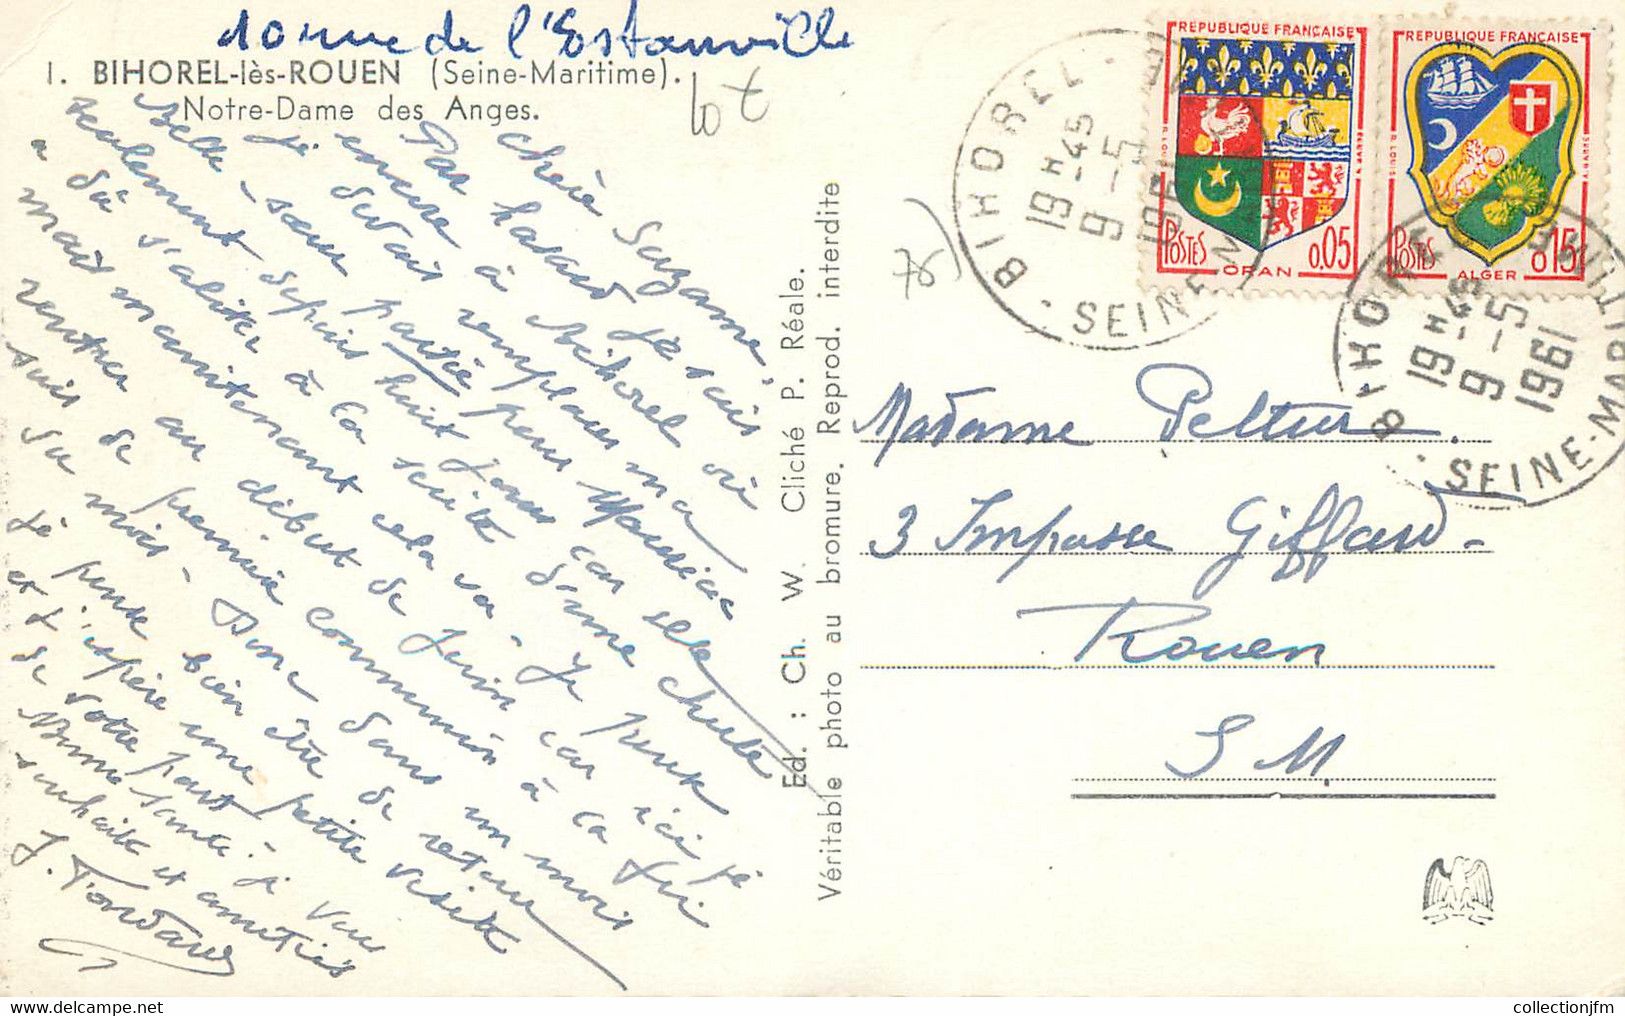 10 rue de l'Estanville
1. BIHOREL-lès-ROUEN (Seine-Maritime).
Notre-Dame des Anges.
Chère Suzanne,
Par hasard je suis
encore à Bihorel où
je devais remplacer ma
Belle-soeur partie pour elle
seulement depuis huit jours car
a dû s'aliter à la suite d'une chute
mais maintenant cela va - Je pense
rentrer au début de Juin car ici je
suis de première communion à la fin
du mois - Donc dans un mois
je pense bien être de retour
et j'espère une petite visite
de votre part.
Bonne santé. Je vous
souhaite et amitiés
J. Fondave
Ed. : Ch. W. Cliché P. Réale.
Véritable photo au bromure. Reprod. interdite
REPUBLIQUE FRANÇAISE
POSTES
0,05
ORAN
REPUBLIQUE FRANÇAISE
POSTES
0,15
ALGER
BIHOREL
19H45
9-5
1961
SEINE-MARITIME
BIHOREL
19H45
9-5
1961
SEINE-MARITIME
Madame
3 Impasse Giffard -
Rouen
S M.
collectionjfm